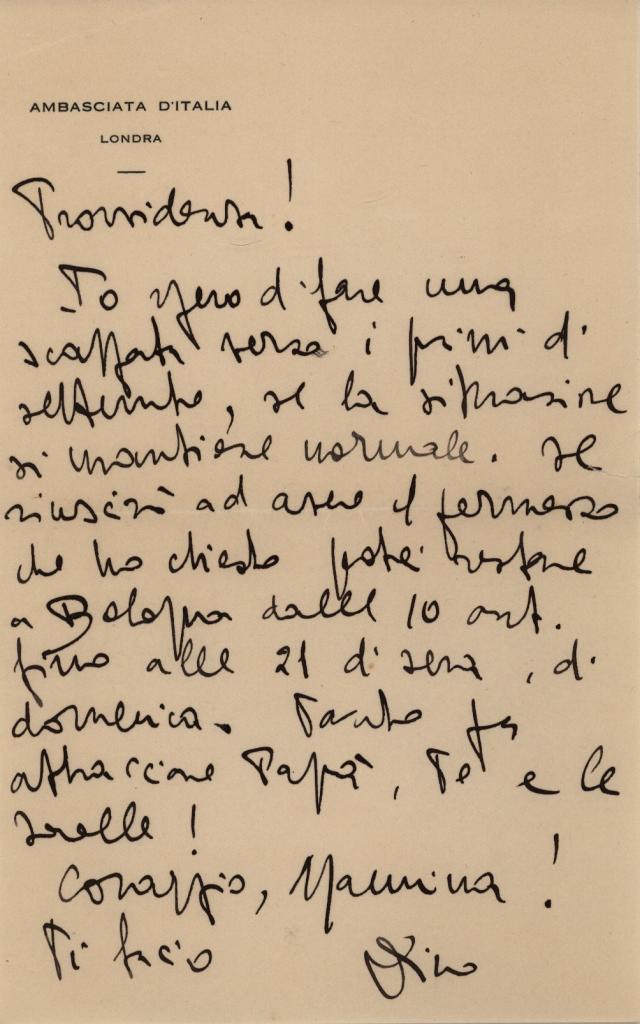 AMBASCIATA D'ITALIA
LONDRA
Provvidenza!
Io spero di fare una
scappata verso i primi di
settembre, se la situazione
si mantiene normale. Se
riuscirò ad avere il permesso
che ho chiesto potrei restare
a Bologna dalle 10 ant.
fino alle 21 di sera, di
domenica. Tanto per
abbracciare Papà, Te e le
sorelle!
Coraggio, Mammina!
Ti bacio Dino